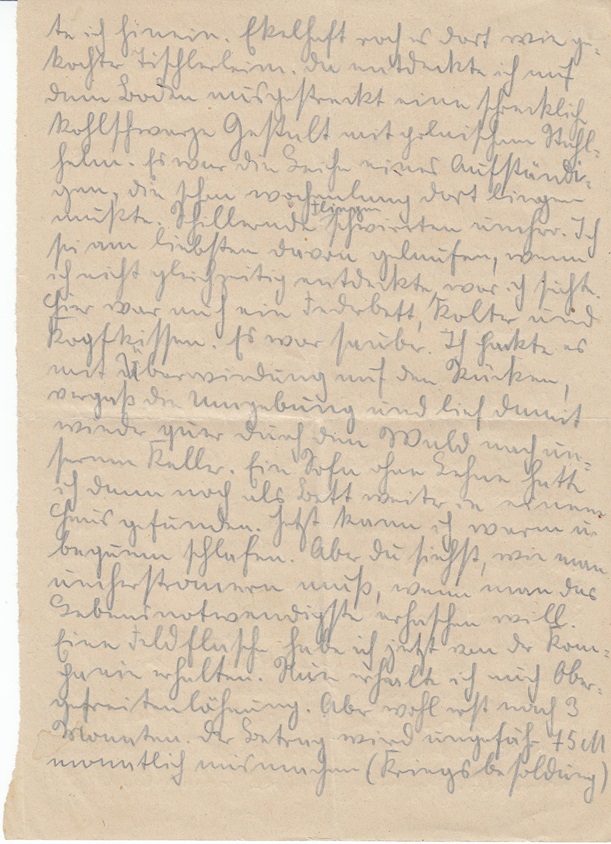 te ich hinein. Ekelhaft roch es dort wie ge-
kochter Tischlerleim. Da entdeckte ich auf
dem Boden ausgestreckt eine schrecklich
kohlschwarze Gestalt mit polnischem Stahl-
helm. Es war die Leiche eines Aufständi-
gen, die schon wochenlang dort liegen
mußte. Schillernde Fliegen schwirrten umher. Ich
sei am liebsten davon gelaufen, wenn
ich nicht gleichzeitig entdeckte, was ich suchte.
Hier war auch ein Federbett, Kolter und
Kopfkissen. Es war sauber. Ich packte es
mit Überwindung auf den Rücken,
vergaß die Umgebung und lief damit
wieder quer durch den Wald nach un-
serem Keller. Ein Sofa ohne Lehne hatte
ich dann noch als Bett weiter in einem
Haus gefunden. Jetzt kann ich warm u.
bequem schlafen. Aber du siehst, wie man
umherstromern muß, wenn man das
Lebensnotwendigste erhaschen will.
Eine Feldflasche habe ich jetzt von der Kom-
panie erhalten. Nun erhalte ich auch Ober-
gefreitenlöhnung. Aber wohl erst nach 3
Monaten. Der Betrag wird ungefähr 75 M
monatlich ausmachen (Kriegsbesoldung)